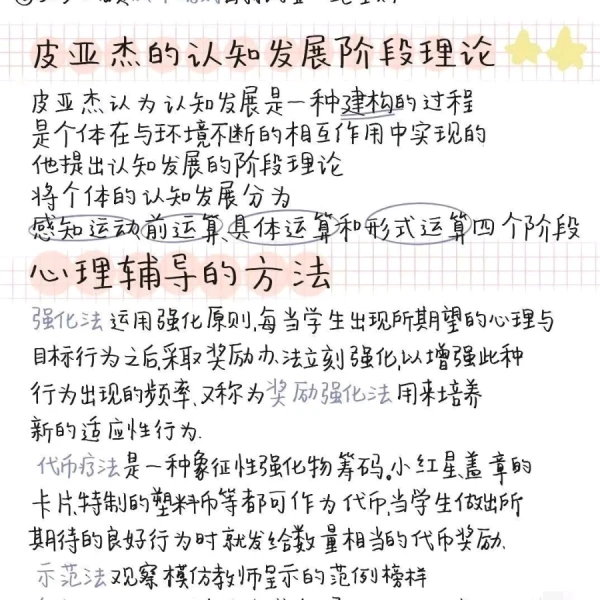 皮亚杰的认知发展阶段理论
皮亚杰认为认知发展是一种建构的过程
是个体在与环境不断的相互作用中实现的
他提出认知发展的阶段理论
将个体的认知发展分为
感知运动、前运算、具体运算和形式运算四个阶段
心理辅导的方法
强化法 运用强化原则,每当学生出现所期望的心理与
目标行为之后,采取奖励办法立刻强化,以增强此种
行为出现的频率、又称为奖励强化法 用来培养
新的适应性行为.
代币疗法是一种象征性强化物筹码。小红星、盖章的
卡片,特制的塑料币等都可作为代币,当学生做出所
期待的良好行为时就发给数量相当的代币奖励.
示范法 观察模仿教师呈示的范例榜样